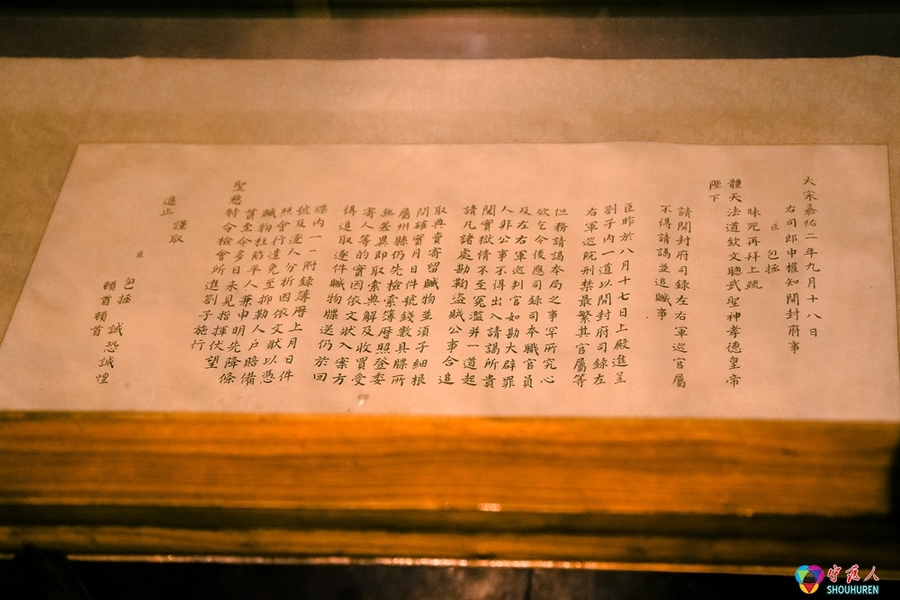 大宋嘉祐二年九月十八日
右司郎中權知開封府事
臣 包拯
昧死再拜上疏
體天法道欽文聰武聖神孝德皇帝
陛下
請開封府司錄左右軍巡官屬
不得請謁並追贓事
臣昨於八月十七日上殿進呈
劄子內一道以開封府司錄左
右軍巡院刑禁最繁其官屬等
但務請謁本局之事罕所究心
欲乞今後應司錄司本職官員
及左右軍巡判官如勘大辟罪
人非公事不得出入請謁所貴
閱實獄情不至冤濫并一道起
請凡諸處勘鞫盜賊公事合追
取典賣寄留贓物並須子細根
問確實月日件號錢數具牒所
屬州縣仍先檢索簿曆照登委
無差異即取索典解及收買受
寄人等的實因依文狀入案方
得追取逐件贓物牒送仍於回
牒內一一附錄簿曆上月日件
號及逐人分析因依文狀以憑
照會行遣免至抑勒人戶賠備
贓物枉陷平人兼申明先降條
貫至今多日未見指揮伏望
聖慈
特令檢會所進劄子施行
謹取
進止
臣 包拯 誠恐誠惶
頓首頓首
守护人
SHOUHUREN